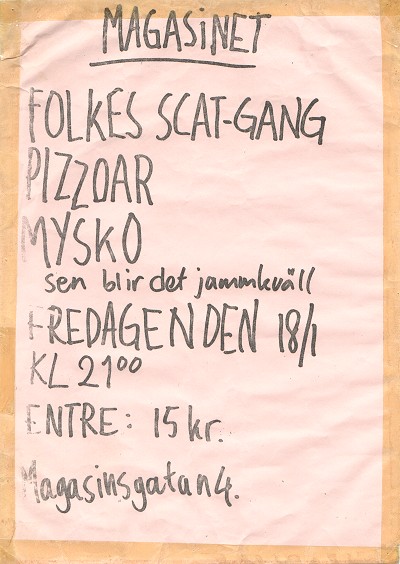 MAGASiNET
FOLKES SCAT-GANG
PIZZOAR
MYSKO
sen blir det jammkväll
FREDAGEN DEN 18/1
KL 21⁰⁰
ENTRE: 15 kr.
Magasinsgatan 4.